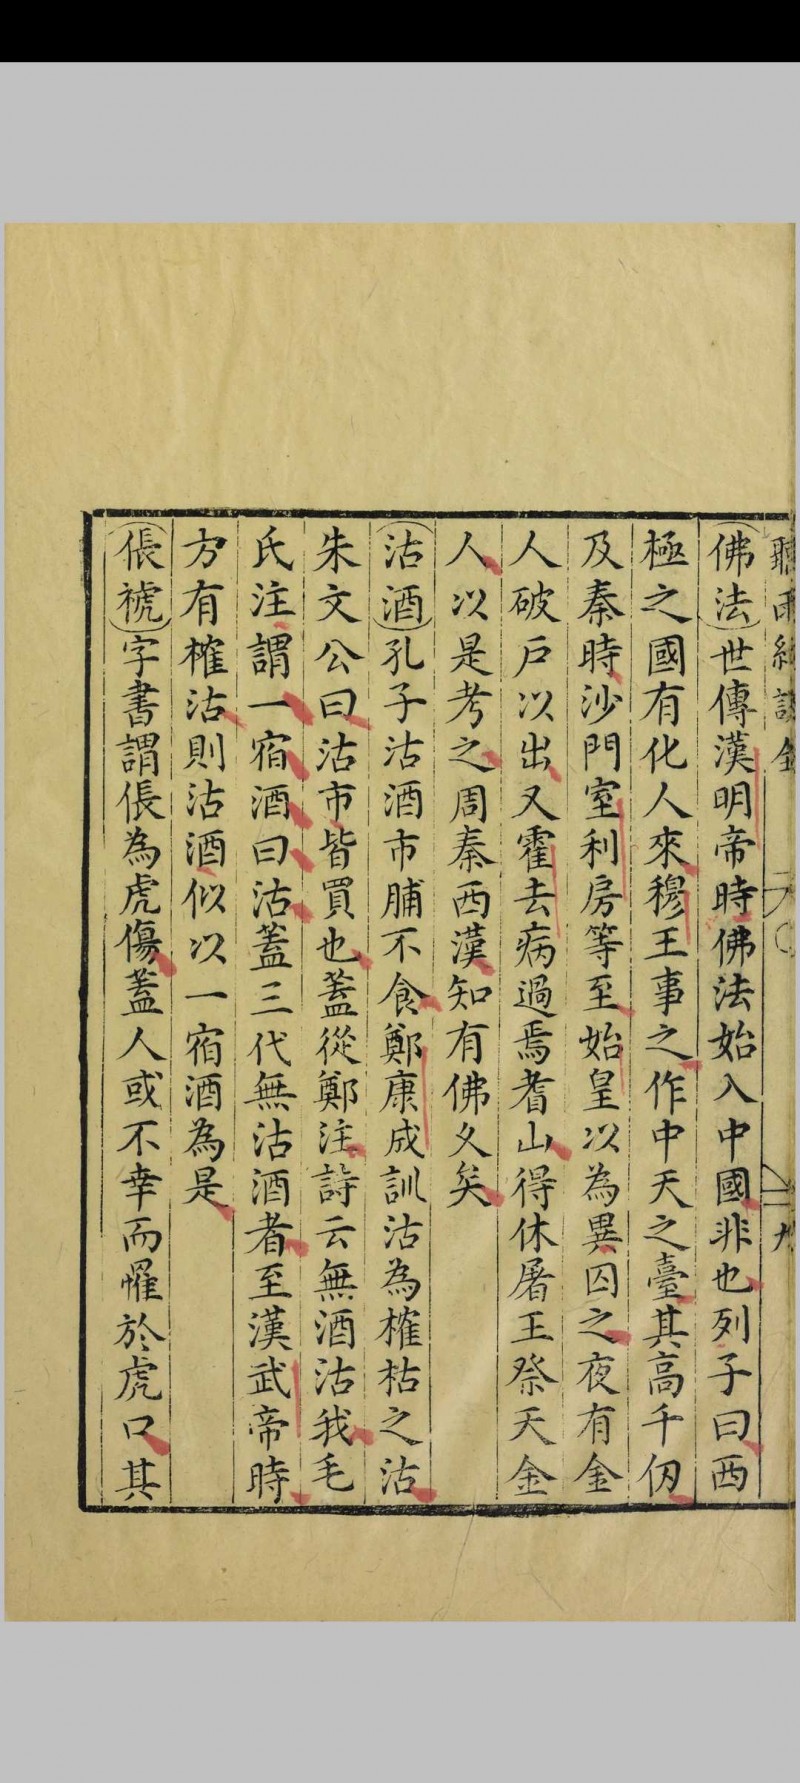 聽雨紀談全
九
佛法世傳漢明帝時佛法始入中國非也列子曰西
極之國有化人來穆王事之作中天之臺其高千仞
及秦時沙門室利房等至始皇以為異囚之夜有金
人破戶以出又霍去病過焉耆山得休屠王祭天金
人以是考之周秦西漢知有佛久矣
沽酒孔子沽酒市脯不食鄭康成訓沽為榷枯之沽
朱文公曰沽市皆買也蓋從鄭注詩云無酒沽我毛
氏注謂一宿酒曰沽蓋三代無沽酒者至漢武帝時
方有榷沽則沽酒似以一宿酒為是
倀褫字書謂倀為虎傷蓋人或不幸而罹於虎口其